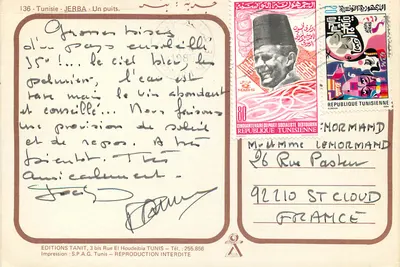 136 - Tunisie - JERBA - Un puits.
Grosses bises
d'un pays ensoleillé
35° !... le ciel bleu, les
palmiers, l'eau est
rare mais le vin abondant
et conseillé... Nous faisons
une provision de soleil
et de repos. A très
bientôt. Très
amicalement.
80
REPUBLIQUE TUNISIENNE
REPUBLIQUE TUNISIENNE
NORMAND
Mr & Mme LENORMAND
26 Rue Pasteur
92210 ST CLOUD
FRANCE
EDITIONS TANIT, 3 bis Rue El Houdeibia TUNIS - Tél. : 256.856
Impression : S.P.A.G. Tunis - REPRODUCTION INTERDITE